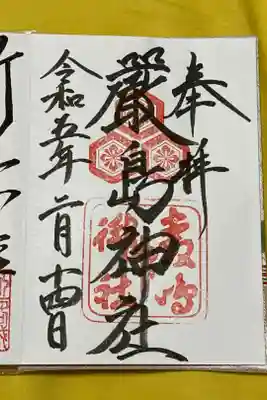 奉拝
嚴島神社
令和五年二月十四日
嚴島
神社